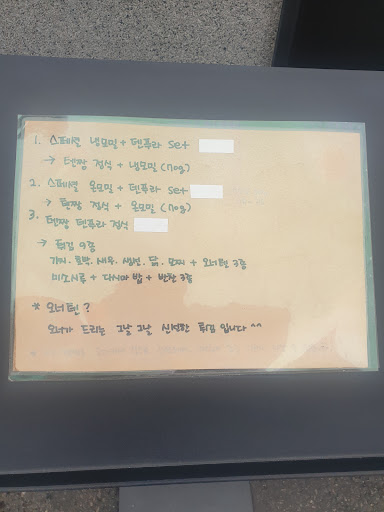 1. 스페셜 냉모밀 + 텐푸라 set
→ 텐짱 정식 + 냉모밀 (170g)
2. 스페셜 온모밀 + 텐푸라 set
→ 텐짱 정식 + 온모밀 (170g)
3. 텐짱 텐푸라 정식
→ 튀김 9종
가지. 호박. 새우. 생선. 닭. + 오너텐 3종
미소시루 + 다시마 밥 + 반찬 3종
* 오너텐?
오너가 드리는 그날 그날 신선한 튀김 입니다 ^^